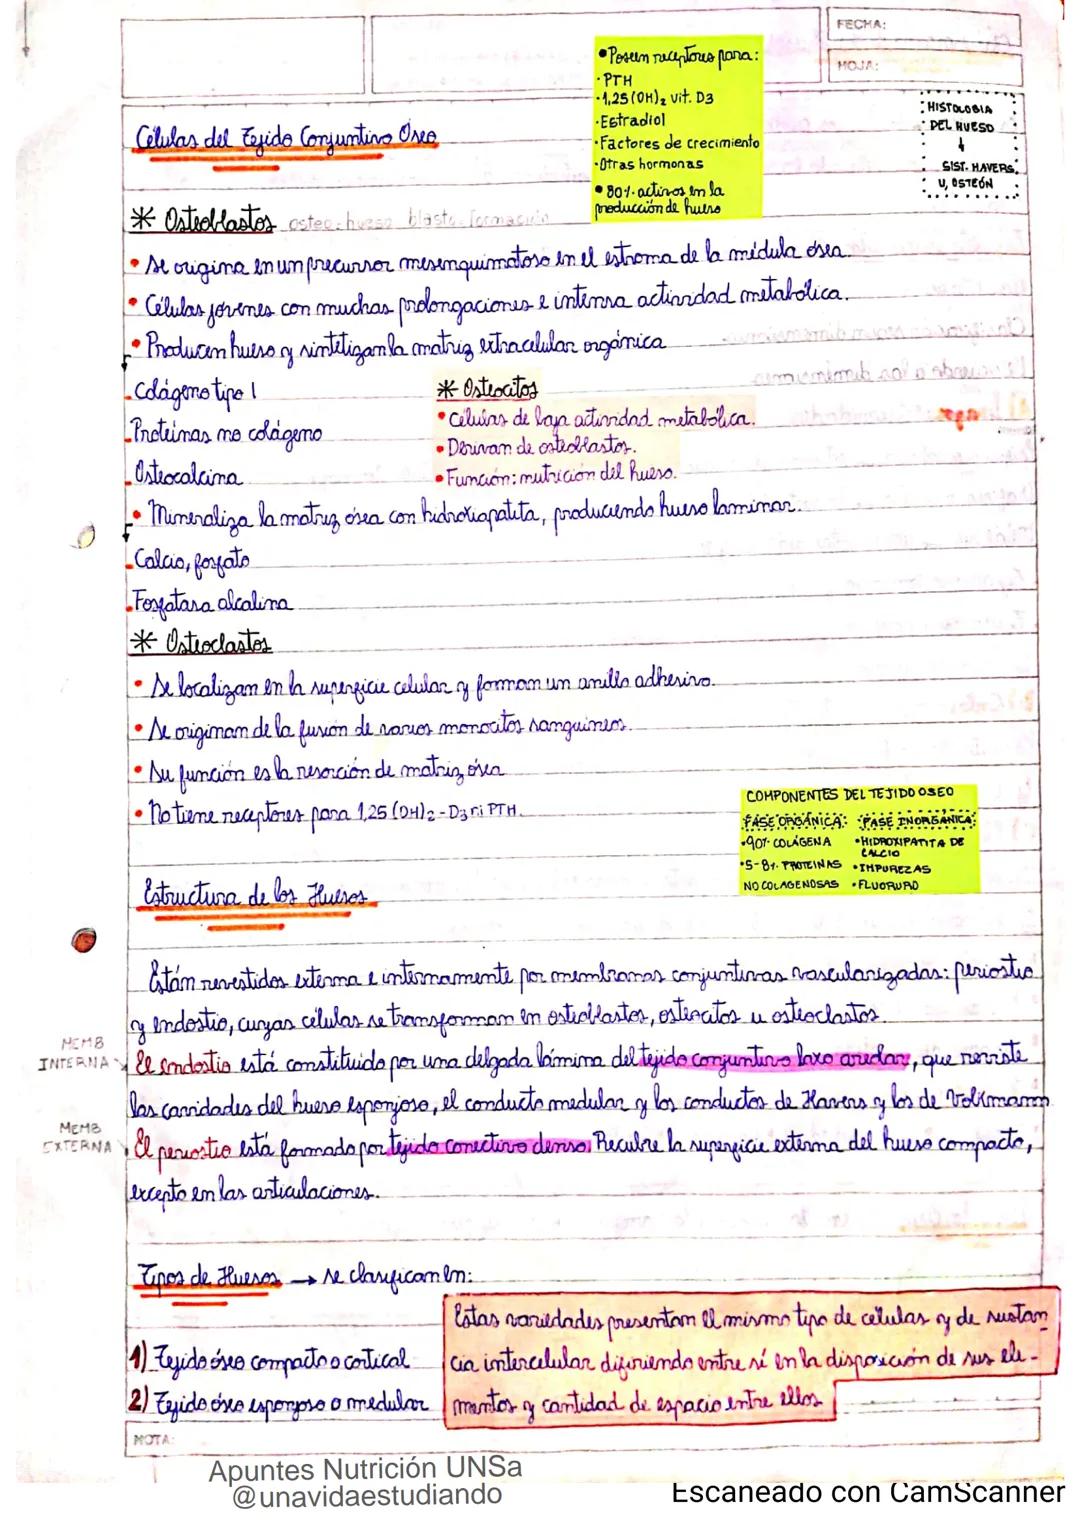 FECHA:
HOJA:
• Poseen receptores para:
· PTH
· 1,25 (OH)₂ vit. D3
· Estradiol
· Factores de crecimiento
· Otras hormonas
• 80% activos en la
producción de hueso
HISTOLOGIA
DEL HUESO
↓
SIST. HAVERS.
U, OSTEÓN
Células del Tejido Conjuntivo Óseo
* Osteoblastos osteo: hueso blasto: formación
• Se origina en un precursor mesenquimatoso en el estroma de la médula ósea.
• Células jóvenes con muchas prolongaciones e intensa actividad metabólica.
• Producen hueso y sintetizan la matriz extracelular orgánica
Colágeno tipo 1
Proteínas no colágeno
Osteocalcina
* Osteocitos
• Células de baja actividad metabólica.
• Derivan de osteoblastos.
• Función: nutrición del hueso.
• Mineraliza la matriz ósea con hidroxiapatita, produciendo hueso laminar.
Calcio, fosfato
Fosfatasa alcalina
* Osteoclastos
• Se localizan en la superficie celular y forman un anillo adhesivo.
• Se originan de la fusión de varios monocitos sanguíneos.
• Su función es la resorción de matriz ósea
• No tiene receptores para 1,25 (OH)₂ - D3 ni PTH.
COMPONENTES DEL TEJIDO OSEO
FASE ORGÁNICA: FASE INORGÁNICA:
• 90% COLÁGENA • HIDROXIPATITA DE
CALCIO
• 5-8% PROTEINAS • IMPUREZAS
NO COLAGENOSAS • FLUORURO
Estructura de los Huesos
Están revestidos externa e internamente por membranas conjuntivas vascularizadas: periostio
y endostio, cuyas células se transforman en osteoblastos, osteocitos u osteoclastos
MEMB
INTERNA
El endostio está constituido por una delgada lámina del tejido conjuntivo laxo areolar, que reviste
las cavidades del hueso esponjoso, el conducto medular y los conductos de Havers y los de Volkmann
MEMB
EXTERNA
El periostio está formado por tejido conectivo denso. Recubre la superficie externa del hueso compacto,
excepto en las articulaciones.
Tipos de Huesos → se clasifican en:
1) Tejido óseo compacto o cortical
2) Tejido óseo esponjoso o medular
Estas variedades presentan el mismo tipo de células y de sustan
cia intercelular difiriendo entre sí en la disposición de sus ele-
mentos y cantidad de espacio entre ellos
NOTA:
Apuntes Nutrición UNSa
@unavidaestudiando
Escaneado con CamScanner